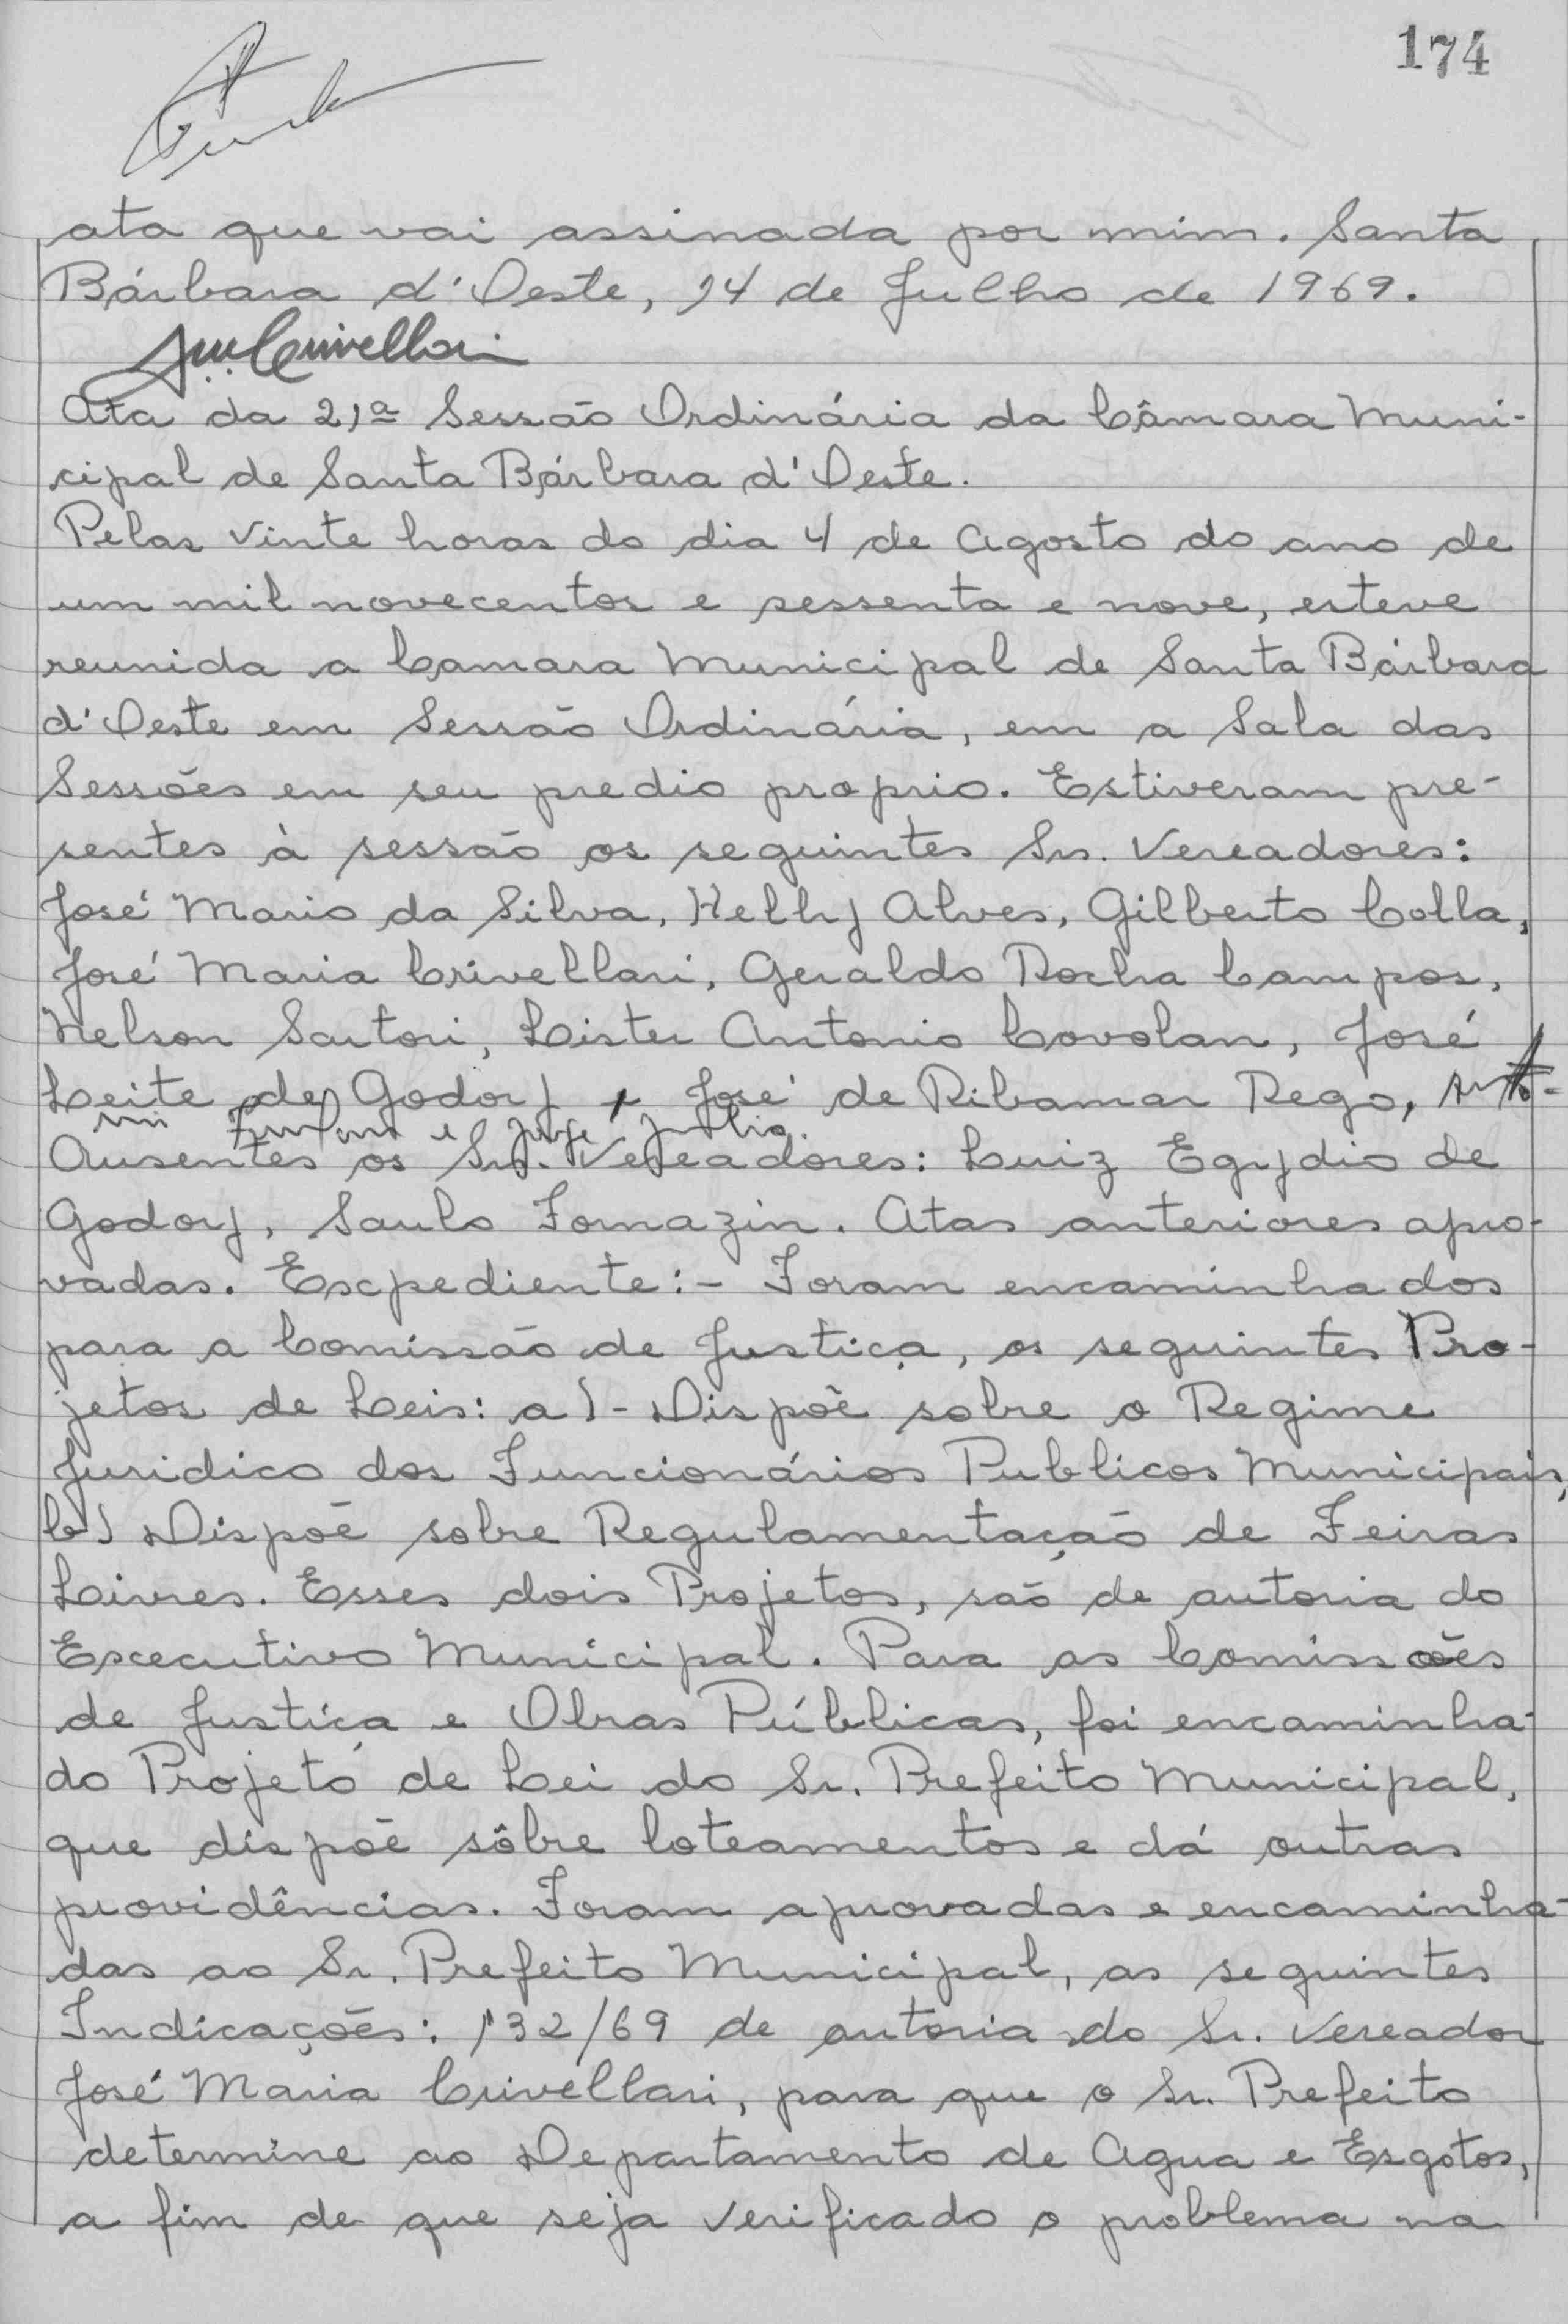 174
ata que vai assinada por mim. Santa
Bárbara d'Oeste, 14 de Julho de 1969.
Crivellari
Ata da 21ª Sessão Ordinária da Câmara Muni-
cipal de Santa Bárbara d'Oeste.
Pelas vinte horas do dia 4 de Agosto do ano de
um mil novecentos e sessenta e nove, esteve
reunida a Camara Municipal de Santa Bárbara
d'Oeste em Sessão Ordinária, em a Sala das
Sessões em seu predio proprio. Estiveram pre-
sentes à sessão os seguintes Srs. Vereadores:
José Mario da Silva, Hélly Alves, Gilberto Colla,
José Maria Crivellari, Geraldo Rocha Campos,
Nelson Sartori, Lister Antonio Covolan, José
Leite de Godoy e José de Ribamar Rego, Anto-
nio e Jorge Julio.
Ausentes os Srs. Vereadores: Luiz Egydio de
Godoy, Saulo Fornazin. Atas anteriores apro-
vadas. Expediente:- Foram encaminhados
para a Comissão de Justiça, os seguintes Pro-
jetos de Leis: a)- Dispõe sobre o Regime
Juridico dos Funcionários Publicos Municipais,
b) Dispõe sobre Regulamentação de Feiras
Livres. Esses dois Projetos, são de autoria do
Executivo Municipal. Para as Comissões
de Justiça e Obras Públicas, foi encaminha-
do Projeto de Lei do Sr. Prefeito Municipal,
que dispõe sôbre loteamentos e dá outras
providências. Foram aprovadas e encaminha-
das ao Sr. Prefeito Municipal, as seguintes
Indicações: 132/69 de autoria do Sr. Vereador
José Maria Crivellari, para que o Sr. Prefeito
determine ao Departamento de Agua e Esgotos,
a fim de que seja verificado o problema na